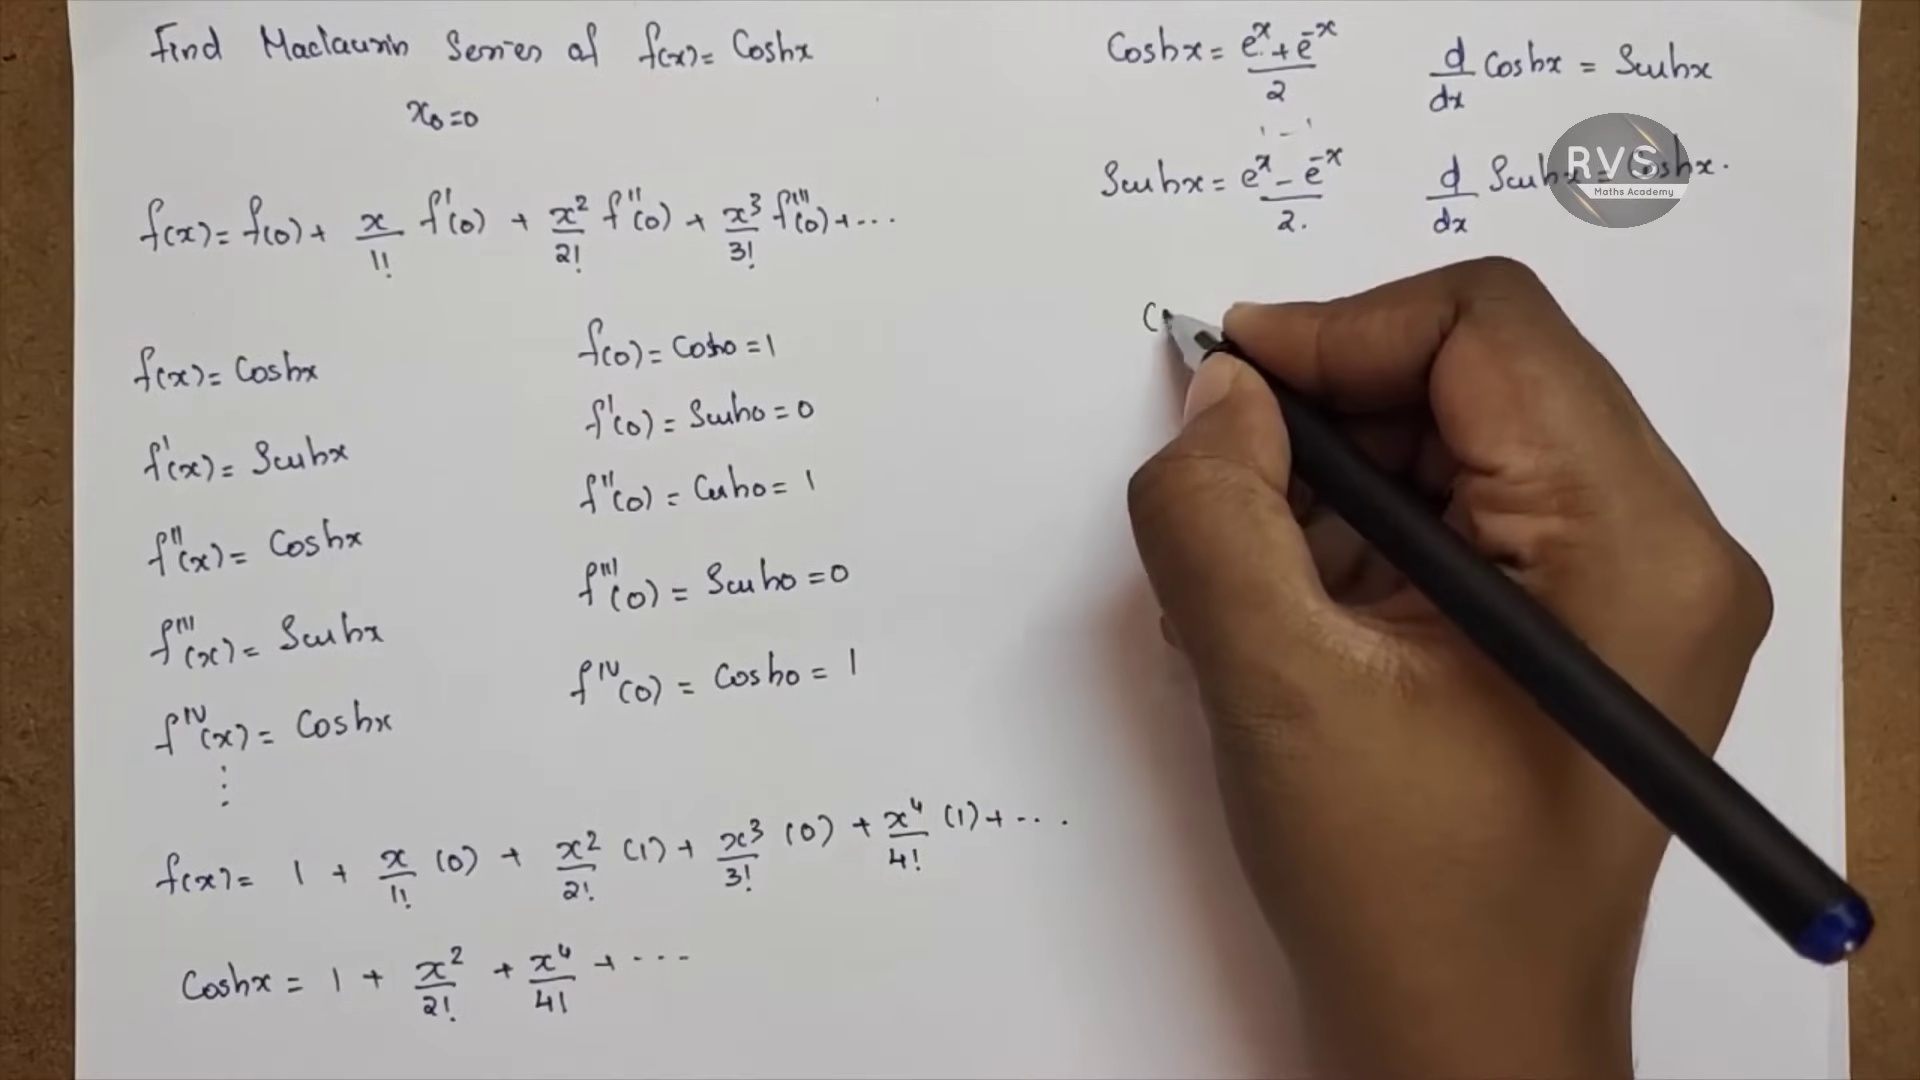 Find Maclaurin Series of f(x) = Coshx
x₀ = 0
f(x) = f(0) + x/1! f'(0) + x²/2! f''(0) + x³/3! f'''(0) + ...
f(x) = Coshx
f'(x) = Sinhx
f''(x) = Coshx
f'''(x) = Sinhx
f^IV(x) = Coshx
⋮
f(0) = Cosh0 = 1
f'(0) = Sinh0 = 0
f''(0) = Cosh0 = 1
f'''(0) = Sinh0 = 0
f^IV(0) = Cosh0 = 1
f(x) = 1 + x/1! (0) + x²/2! (1) + x³/3! (0) + x⁴/4! (1) + ...
Coshx = 1 + x²/2! + x⁴/4! + ...
Coshx = (e^x + e^-x)/2
d/dx Coshx = Sinhx
Sinhx = (e^x - e^-x)/2.
d/dx Sinhx = Coshx.
RVS
Maths Academy